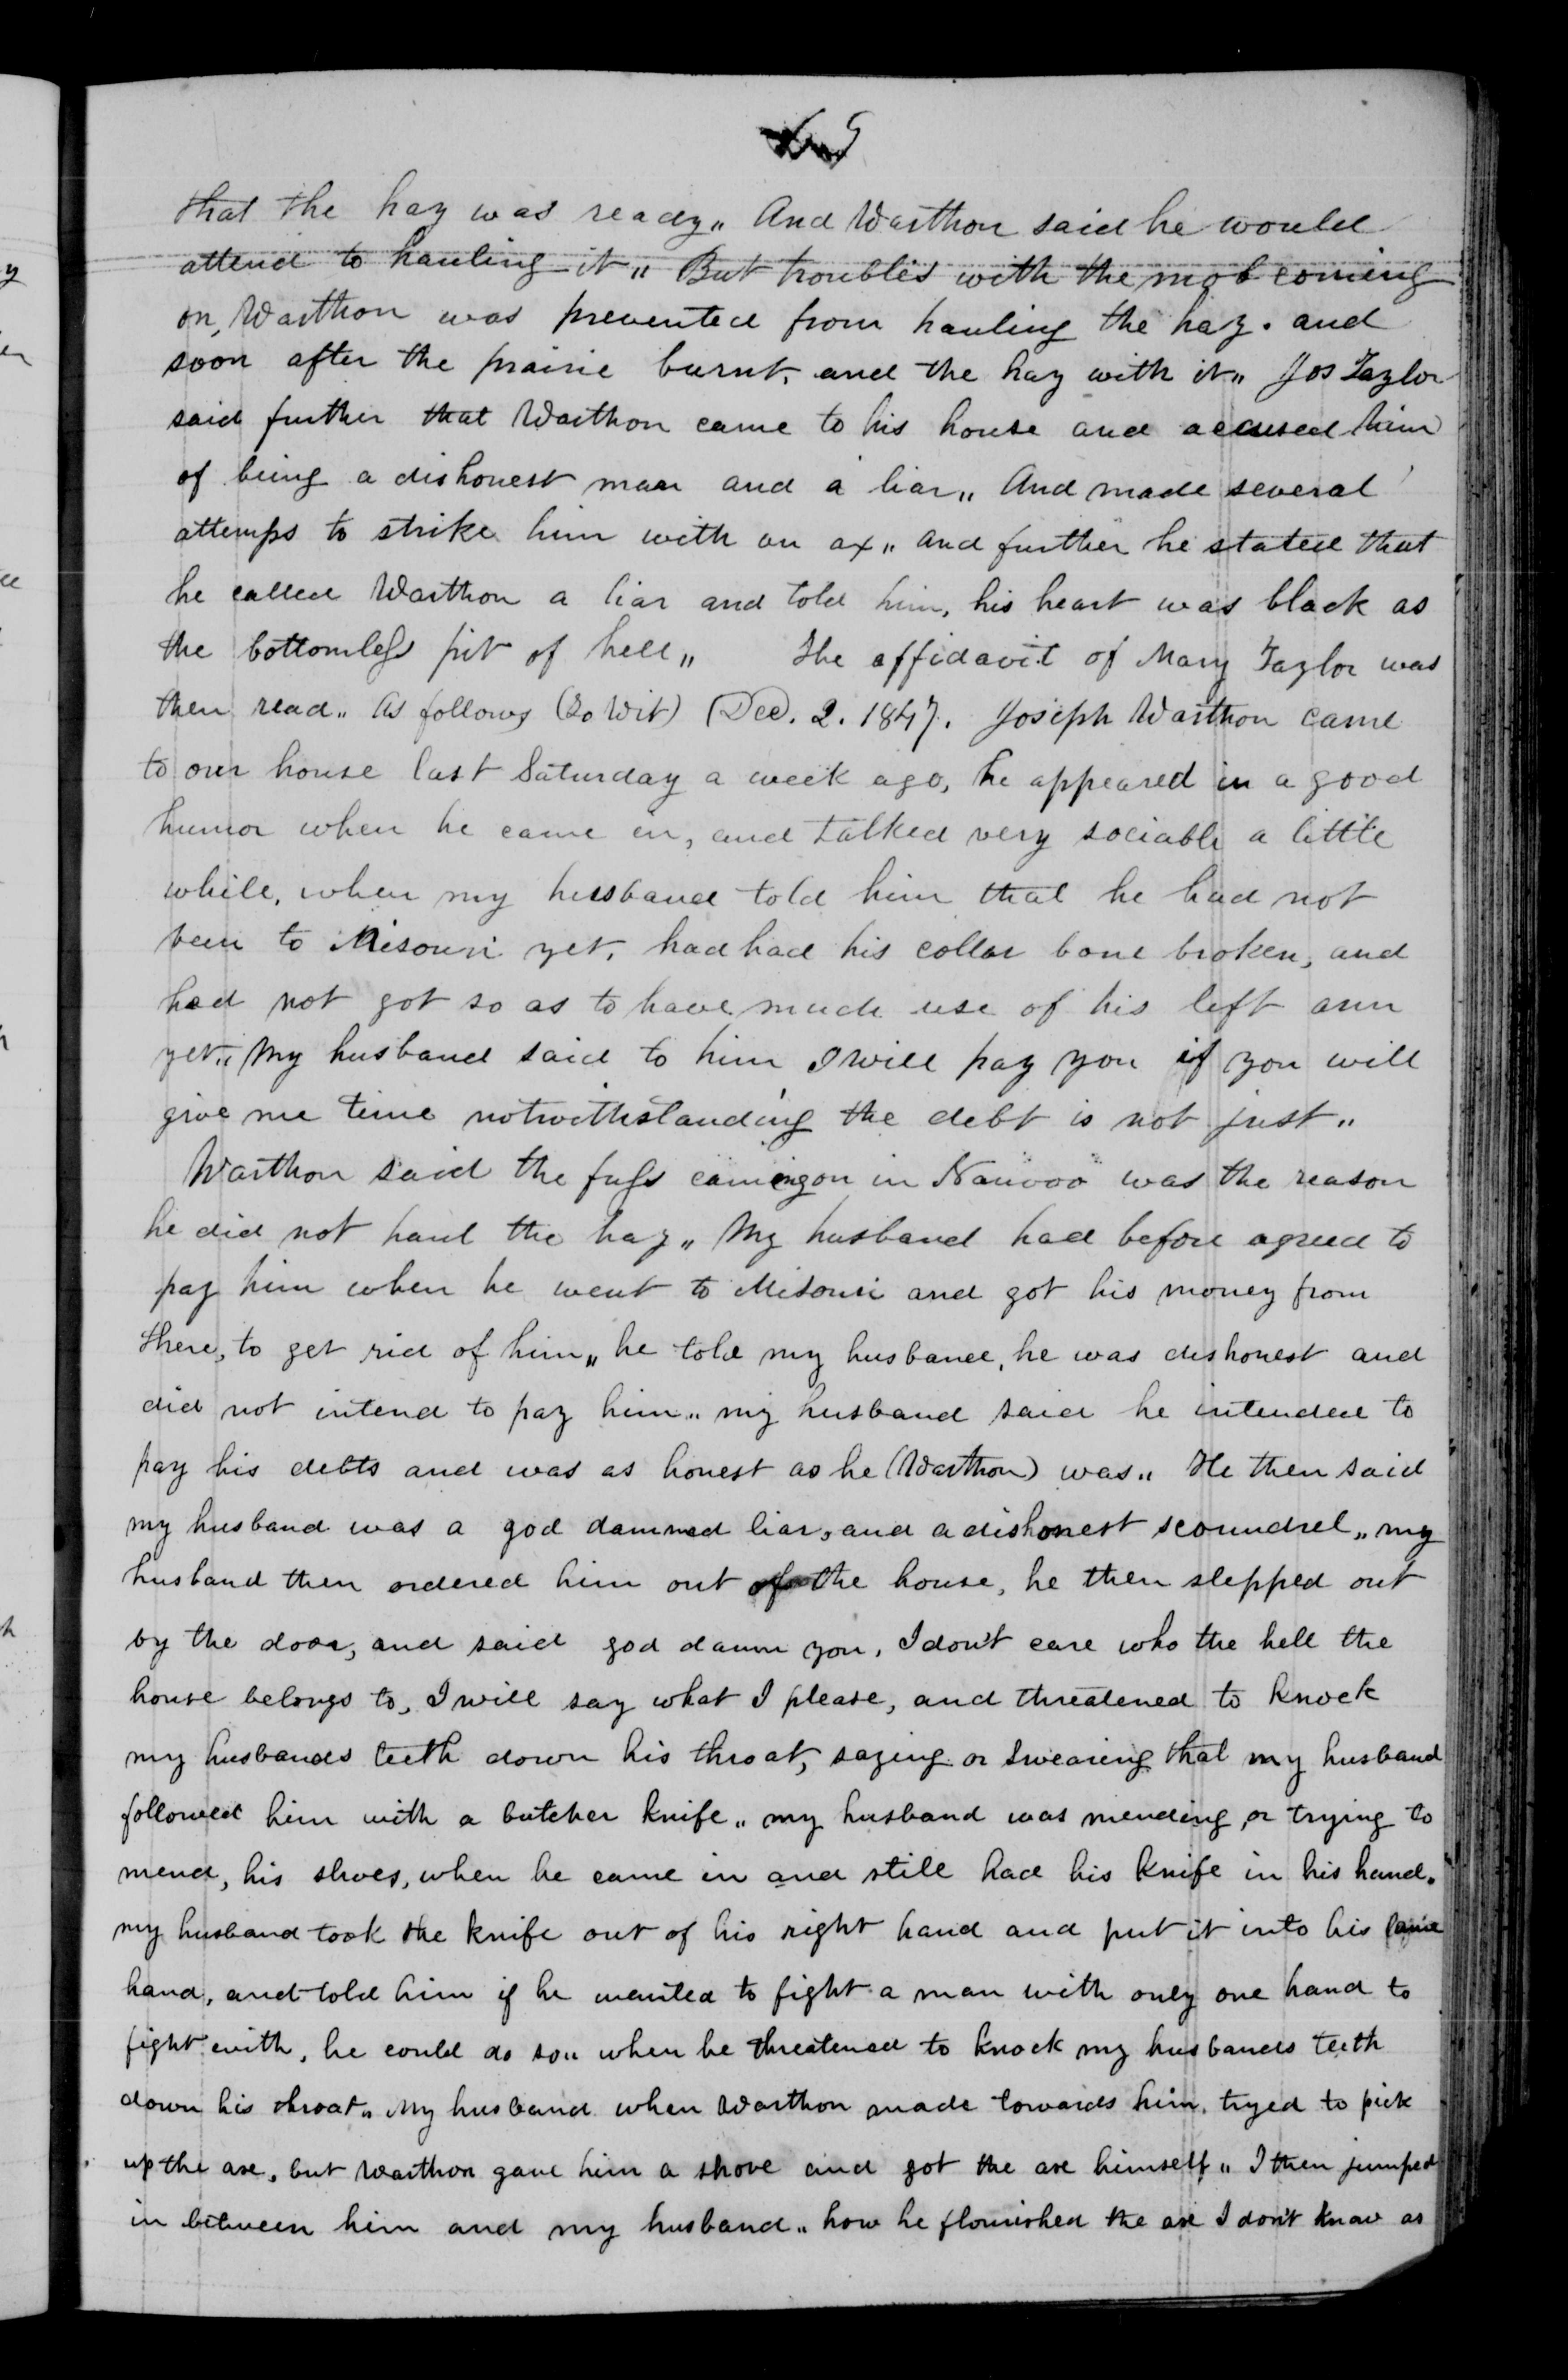 that the hay was ready„ And Warthon said he would
attend to hauling it„ But troubles with the mob coming
on, Warthon was prevented from hauling the hay. and
soon after the prairie burnt, and the hay with it„ Jos Taylor
said further that Warthon came to his house and accused him
of being a dishonest man and a liar„ And made several
attemps to strike him with an ax„ and further he stated that
he called Warthon a liar and told him, his heart was black as
the bottomless pit of hell„ The affidavit of Mary Taylor was
then read„ As follows (To Wit) (Dec. 2. 1847. Joseph Warthon came
to our house last Saturday a week ago, he appeared in a good
humor when he came in, and talked very sociable a little
while, when my husband told him that he had not
been to Misouri yet, had had his collar bone broken, and
had not got so as to have much use of his left arm
yet„ My husband said to him I will pay you if you will
give me time notwithstanding the debt is not just„
Warthon said the fuss comingon in Nauvoo was the reason
he did not haul the hay„ My husband had before agreed to
pay him when he went to Misouri and got his money from
there, to get rid of him„ he told my husband, he was dishonest and
did not intend to pay him„ my husband said he intended to
pay his debts and was as honest as he (Warthon) was„ He then said
my husband was a god dammed liar, and a dishonest scoundrel„ my
husband then ordered him out of the house, he then stepped out
by the door, and said god damn you, I don't care who the hell the
house belongs to, I will say what I please, and threatened to knock
my husbands teeth down his throat, saying or swearing that my husband
followed him with a butcher knife„ my husband was mending or trying to
mend, his shoes, when he came in and still had his knife in his hand.
my husband took the knife out of his right hand and put it into his lame
hand, and told him if he wanted to fight a man with only one hand to
fight with, he could do so„ when he threatened to knock my husbands teeth
down his throat„ My husband when Warthon made towards him, tryed to pick
up the axe, but Warthon gave him a shove and got the axe himself„ I then jumped
in between him and my husband„ how he flourished the axe I don't know as